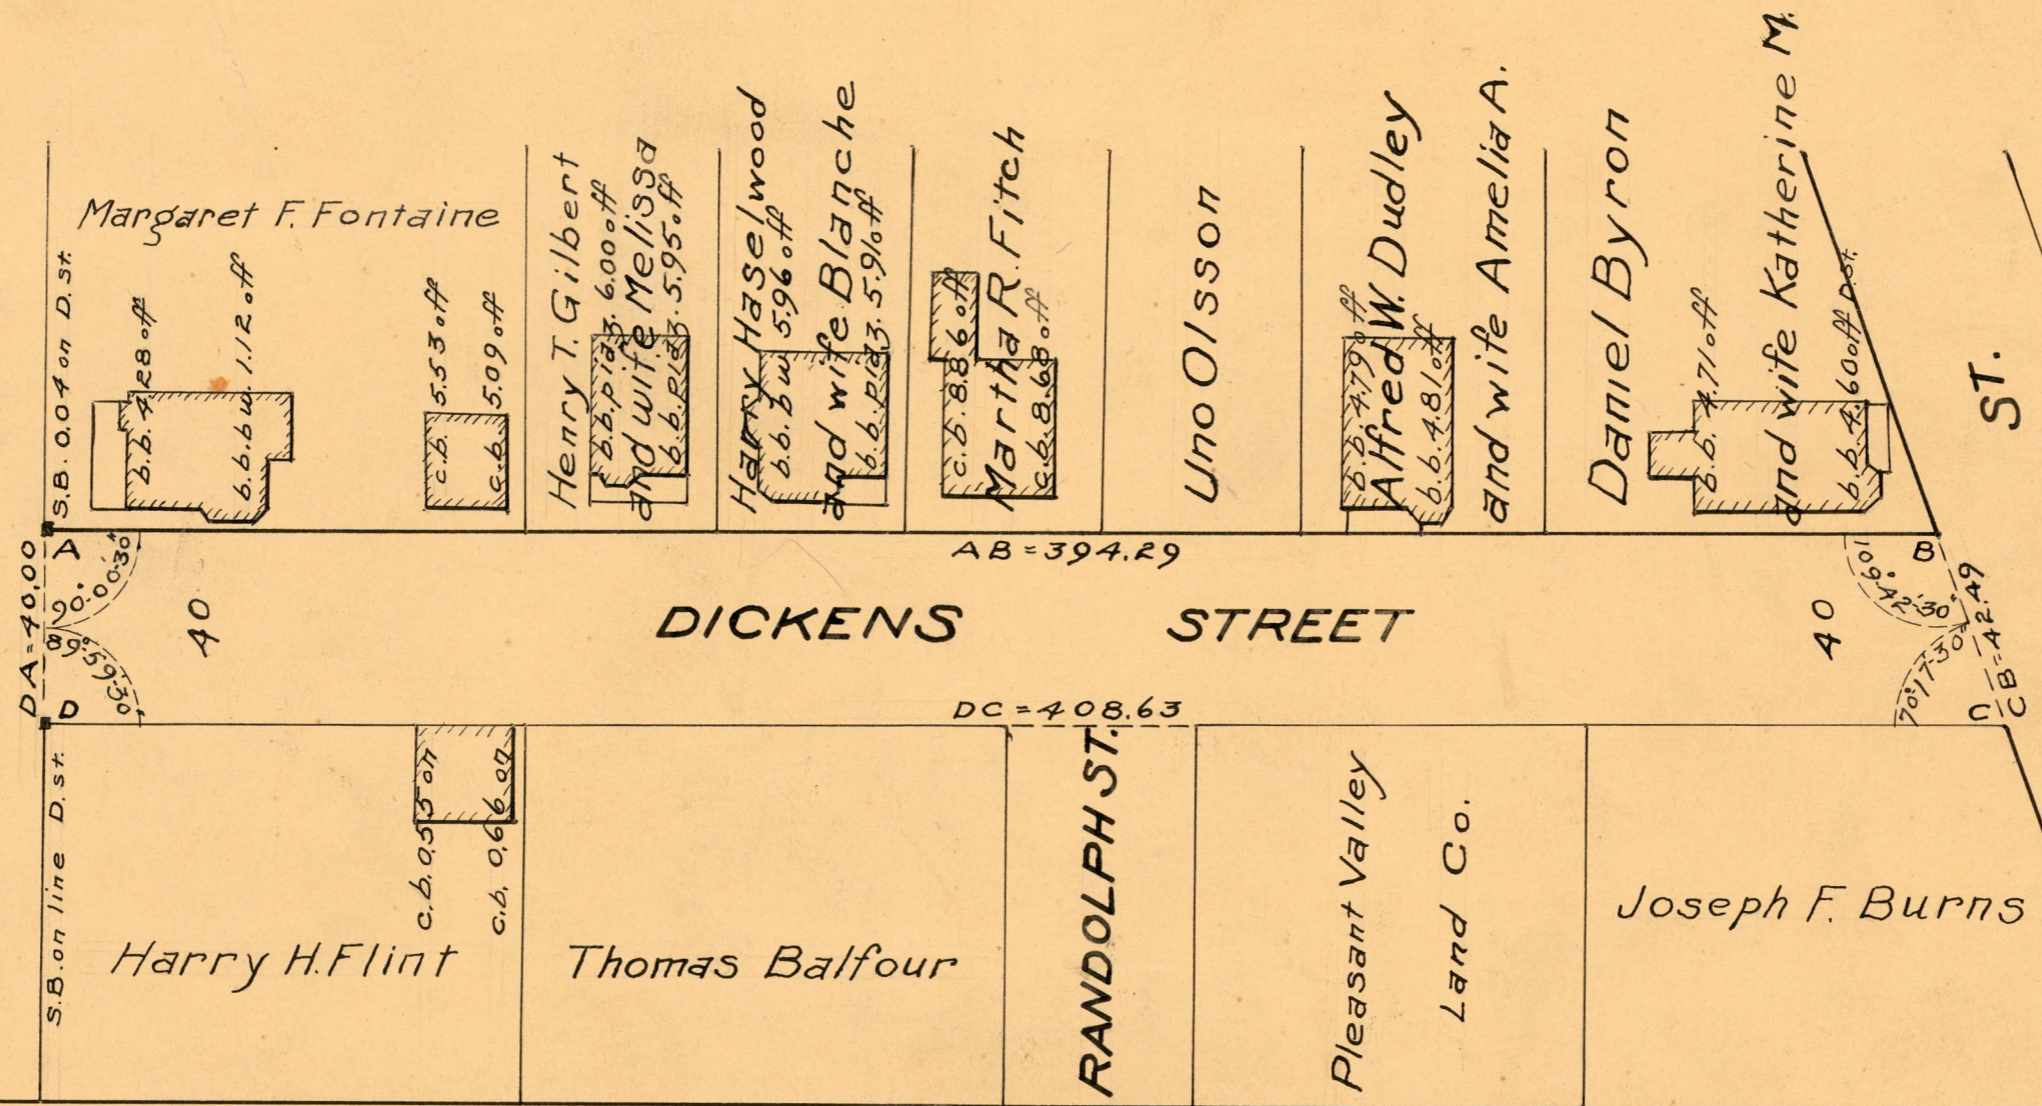 S.B. 0.04 on D. st.
Margaret F. Fontaine
b.b. 4.28 off
b.b.b w. 1.12 off
c.b. 5.53 off
c.b. 5.09 off
Henry T. Gilbert
and wife Melissa
b.b. piaz. 6.00 off
b.b. piaz. 5.95 off
Harry Haselwood
and wife Blanche
b.b. b w 5.96 off
b.b. piaz. 5.91 off
Martha R. Fitch
c.b. 8.86 off
c.b. 8.68 off
Uno Olsson
Alfred W. Dudley
and wife Amelia A.
b.b. 4.79 off
b.b. 4.81 off
Daniel Byron
and wife Katherine M.
b.b. 4.71 off
b.b. 4.60 off D. st.
ST.
A
AB = 394.29
B
DA = 40.00
90°-00'-30"
89°-59'-30"
40
DICKENS STREET
40
109°-42'-30"
70°-17'-30"
CB = 42.49
D
DC = 408.63
C
S.B. on line D. st.
c.b. 0.55 on
c.b. 0.66 on
Harry H. Flint
Thomas Balfour
RANDOLPH ST.
Pleasant Valley
Land Co.
Joseph F. Burns